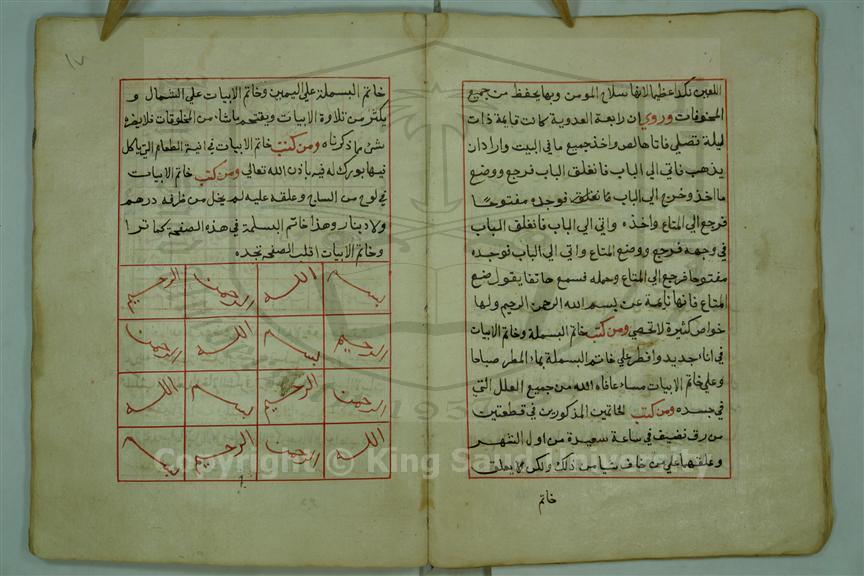 اللعين نكدا عظيما لانها سلاح المومن وبها يحفظ من جميع
المخوفات وروي ان رابعة العدوية كانت قايمة ذات
ليلة تصلي فاتاها لص واخذ جميع ما في البيت واراد ان
يذهب فاتي الي الباب فانغلق الباب فرجع ووضع
ما اخذ وخرج الي الباب فوجده مفتوحا
فرجع الي المتاع واخذه واتي الي الباب فانغلق الباب
في وجهه فرجع ووضع المتاع واتي الي الباب فوجده
مفتوحا فرجع الي المتاع وحمله فسمع هاتفا يقول ضع
المتاع فانها نايمة عن بسم الله الرحمن الرحيم ولها
خواص كثيرة لا تحصي ومن كتب خاتم البسملة وخاتم الابيات
في اناء جديد وافطر علي خاتم البسملة بماء المطر صباحا
وعلي خاتم الابيات مساء عافاه الله من جميع العلل التي
في جسده ومن كتب الخاتمين المذكورين في قطعتين
من رق نضيف في ساعة سعيدة من اول الشهر
وعلقها علي من خاف شيا من ذلك ولكن يعلق
خاتم
١٧
خاتم البسملة علي اليمين وخاتم الابيات علي الشمال و
يكثر من تلاوة الابيات ويقتحم ما شاء من المخلوقات فلا يضره
شئ مما ذكرناه ومن كتب خاتم الابيات في انية الطعام التي ياكل
فيها بورك له فيه باذن الله تعالي ومن كتب خاتم الابيات
في لوح من الساج وعلقه عليه لم يخل من طرفه درهم
ولا دينار وهذا خاتم البسملة في هذه الصفحة كما ترا
وخاتم الابيات اقلب الصفحه تجده
بسم الله الرحمن الرحيم
الرحيم بسم الله الرحمن
الرحمن الرحيم بسم الله
الله الرحمن الرحيم بسم
Copyright © King Saud University
195